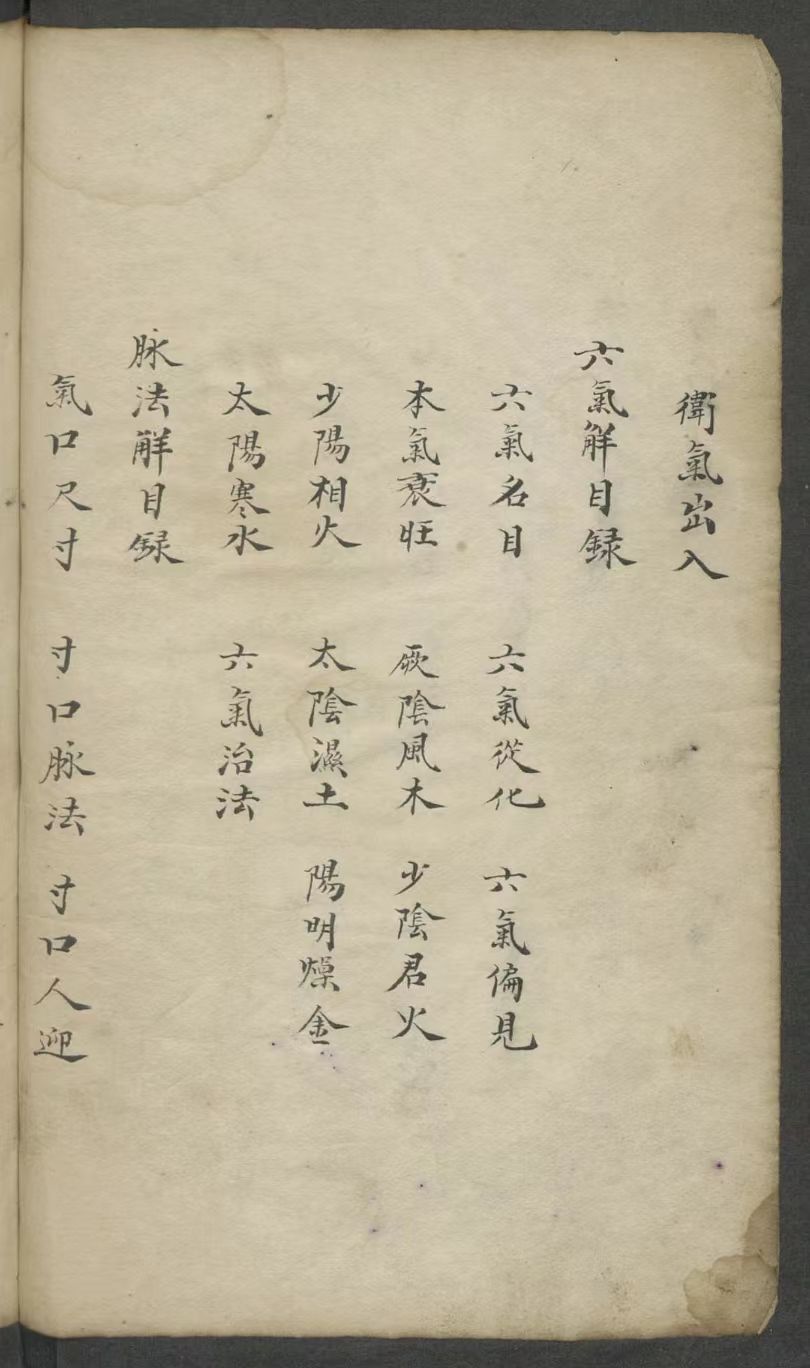 衛氣出入
六氣解目録
六氣名目 六氣從化 六氣偏見
本氣衰旺 厥陰風木 少陰君火
少陽相火 太陰濕土 陽明燥金
太陽寒水 六氣治法
脉法解目録
氣口尺寸 寸口脉法 寸口人迎